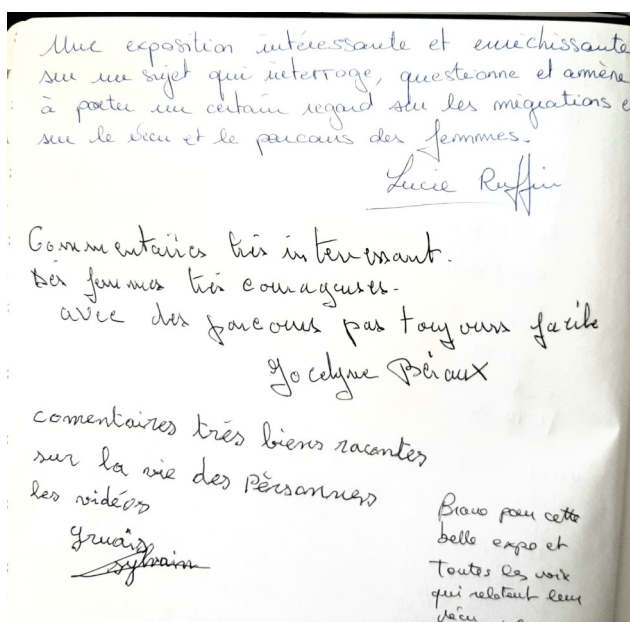 Une exposition intéressante et enrichissante
sur un sujet qui interroge, questionne et amène
à porter un certain regard sur les migrations e
sur le vécu et le parcours des femmes.
Lucie Ruffin
Commentaires très interressant.
Des femmes très courageuses.
avec des parcours pas toujours facile
Jocelyne Béraux
comentaires très biens racontes
sur la vie des Pèrsonnes
les vidéos
gruais
sylvain
Bravo pour cette
belle expo et
toutes les voix
qui relatent leur
vécu